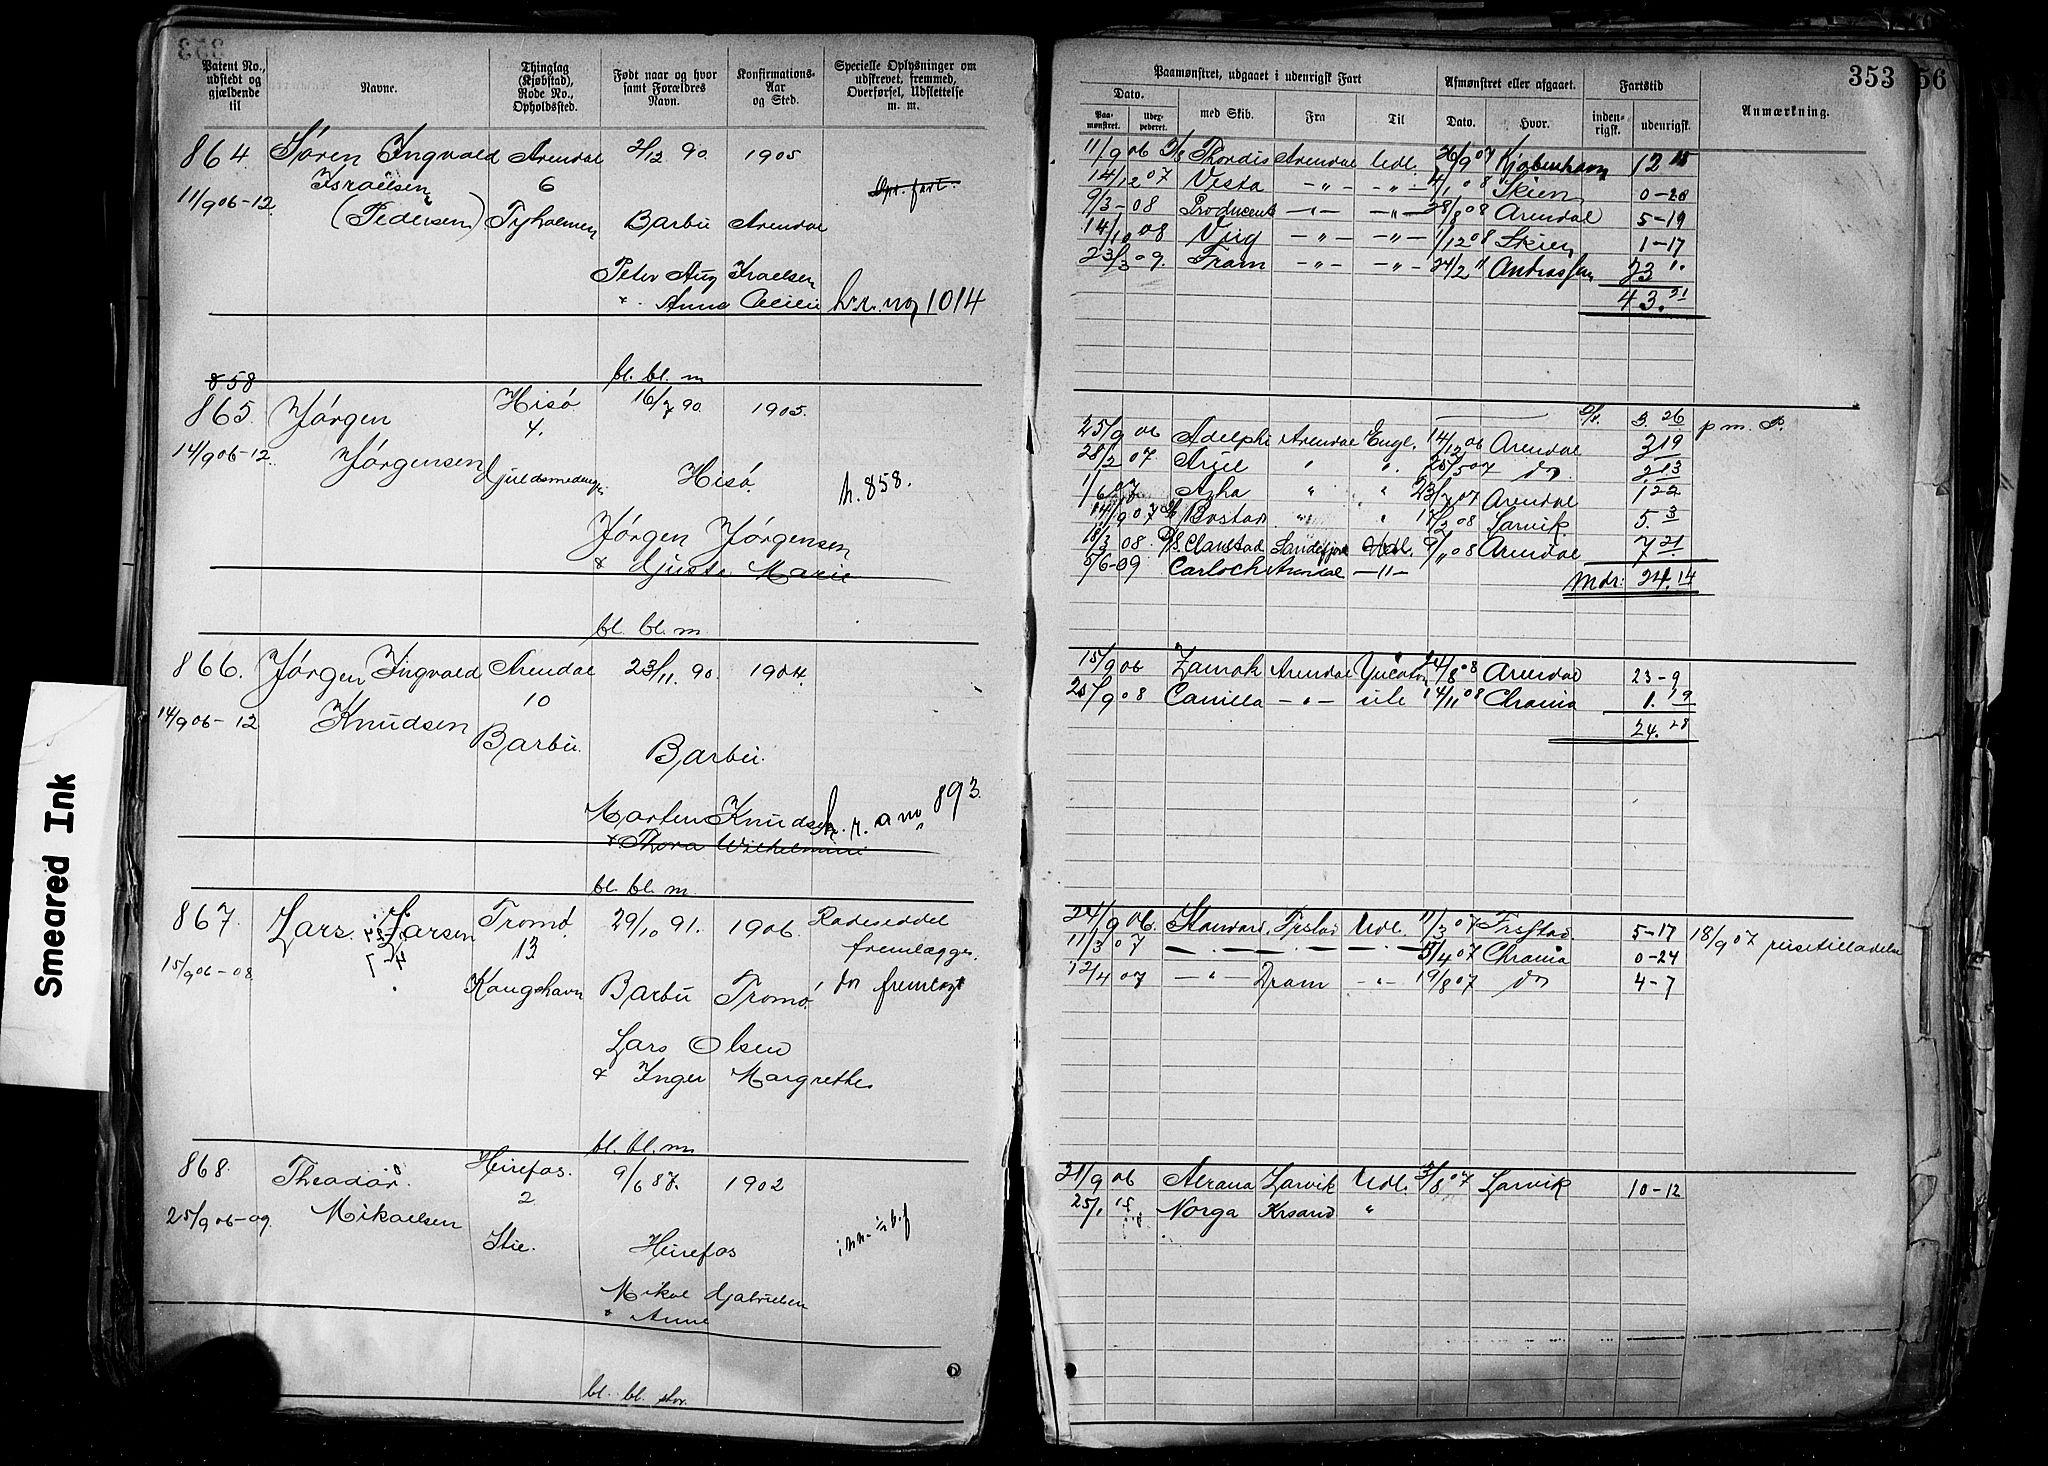 353
Patent No., udstedt og gjældende til
Navne.
Thinglag (Kjøbstad), Rode No., Opholdssted.
Født naar og hvor samt Forældres Navn.
Konfirmations- Aar og Sted.
Specielle Oplysninger om udskrevet, fremmed, Overførsel, Udslettelse m. m.
864 Søren Ingvald Arendal 2/12 90. 1905
Israelsen 6
11/9 06-12. (Pedersen) Tyholmen Barbu Arendal
Peter Aug Israelsen
& Anna Cecilie hr. no 1014
bl. bl. m
858
865. Jørgen Hisø 16/7 90. 1905.
4.
14/9 06-12. Jørgensen Hisø. h. 858.
Jørgen Jørgensen
& Marie
bl. bl. m
866. Jørgen Ingvald Arendal 23/11 90. 1904.
10
14/9 06-12 Knudsen Barbu. Barbu.
893.
Marten Knudsen
& Thora Wilhelmine
bl. bl. m
867. Lars Larsen Tromø. 29/10 91. 1906. Rodeseddel
13 fremlægges.
15/9 06-08 Kongshavn Barbu Tromø. do fremlagt
Lars Olsen
& Inger Margrethe
bl. bl. m
868. Theodor Herefos. 9/6 87. 1902
2
25/9 06-09. Mikaelsen
Stie. Herefos
Mikal Gabrielsen
& Anne
bl. bl. stor.
353 56
Paamønstret, udgaaet i udenrigsk Fart
Afmønstret eller afgaaet.
Fartstid
Anmærkning.
Dato.
Paa- mønstret.
Udex- pederet.
med Skib.
Fra
Til
Dato.
Hvor.
inden- rigsk.
udenrigsk.
11/9 06 Thordis Arendal Udl. 26/9 07 Kjøbenhavn 12 15
14/12 07 Vesta -„- -„- 4/1 08 Skien 0-20
9/3-08 Producent -„- -„- 28/8 08 Arendal 5-19
14/10 08 -„- -„- 1/12 08 Skien 1-17
23/3 09. Fram -„- -„- 24/2 11
43.21
3.26 p m. P.
25/9 06 Adelphi Arendal Engl. 14/12 06 Arendal 2 19
28/2 07 25/5 07 do. 2.13
1/6 07 23/7 07 Arendal 1 22
14/9 07 17/2 08 Larvik 5. 3
18/3 08. Sandefjord Udl. 9/11 08 Arendal 7 21
5/6-09 Arendal -„-
Mdr: 24.14
15/9 06 Arendal 24/8 08 Arendal 23-9
25/9 08 Camilla -„- 14/11 08 Chrania 1. 19
24.28
24/9 06. Standard. Frstad Udl. 11/3 07 Frstad. 5-17 18/9 07 reisetilladelse
11/3 07 -„- -„- -„- 5/4 07 Chrania 0-24
12/4 07 -„- Dram -„- 19/8 07 do 4-7
21/9 06 Larvik Udl. 3/8 07 Larvik 10-12
25/1 Norga Krsand „
Smeared Ink